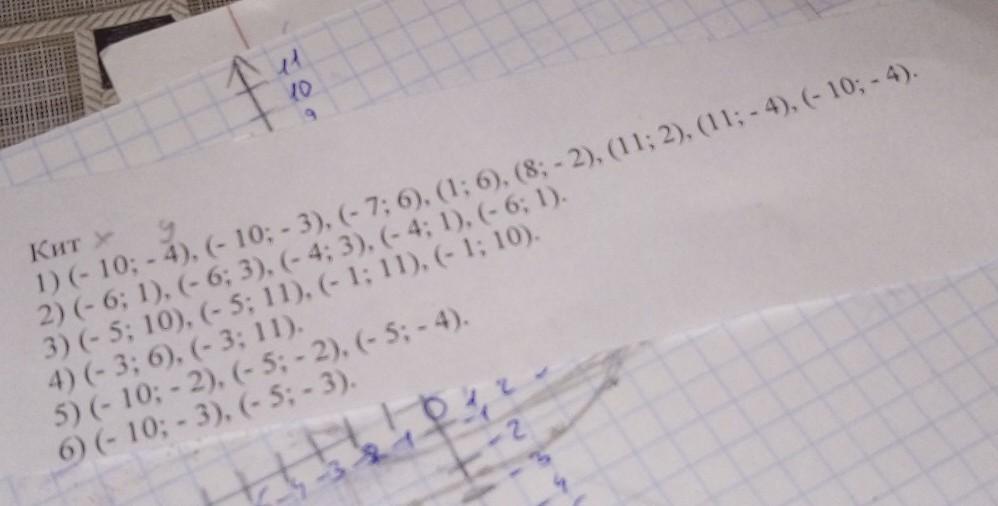 11
10
9
Кит x y
1) (- 10; - 4), (- 10; - 3), (- 7; 6), (1; 6), (8; - 2), (11; 2), (11; - 4), (- 10; - 4).
2) (- 6; 1), (- 6; 3), (- 4; 3), (- 4; 1), (- 6; 1).
3) (- 5; 10), (- 5; 11), (- 1; 11), (- 1; 10).
4) (- 3; 6), (- 3; 11).
5) (- 10; - 2), (- 5; - 2), (- 5; - 4).
6) (- 10; - 3), (- 5; - 3).
-4 -3 -2 -1 0 1 2
-1
-2
-3
-4